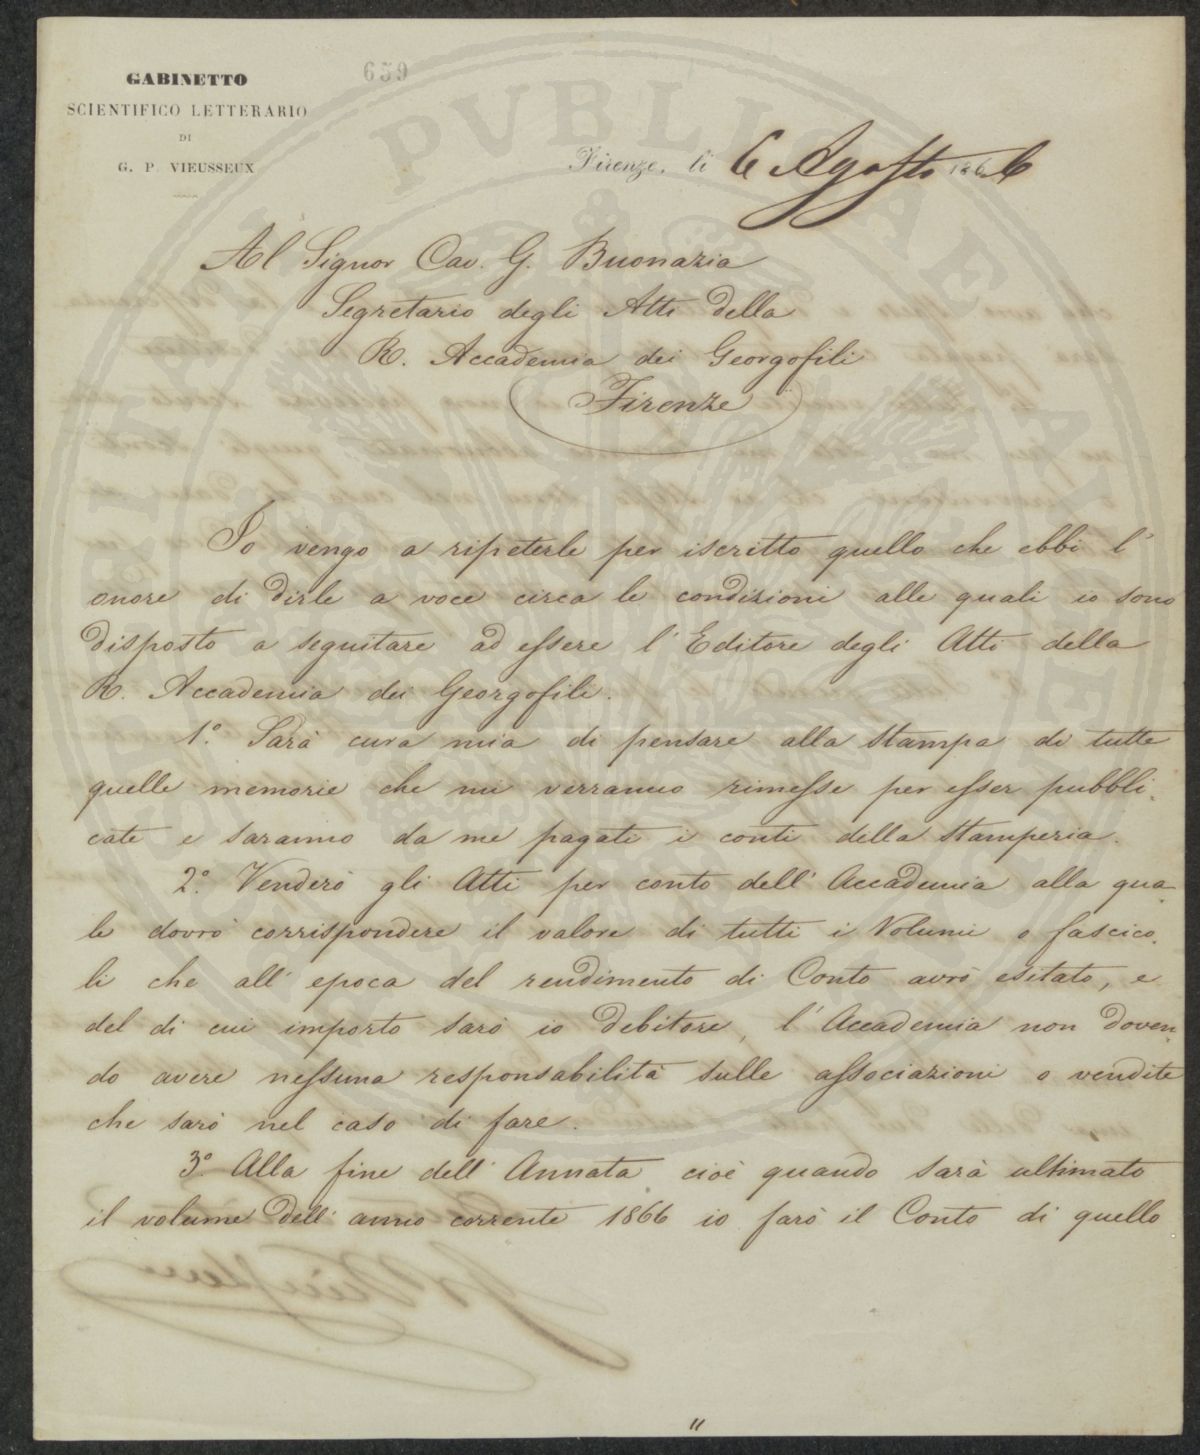 GABINETTO
SCIENTIFICO LETTERARIO
DI
G. P. VIEUSSEUX
659
Firenze, li 6 Agosto 1866
Al Signor Cav. G. Buonazia
Segretario degli Atti della
R. Accademia dei Georgofili
Firenze
Io vengo a ripeterle per iscritto quello che ebbi l'
onore di dirle a voce circa le condizioni alle quali io sono
disposto a seguitare ad essere l'Editore degli Atti della
R. Accademia dei Georgofili.
1.º Sarà cura mia di pensare alla stampa di tutte
quelle memorie che mi verranno rimesse per esser pubbli-
cate e saranno da me pagati i conti della stamperia.
2.º Venderò gli Atti per conto dell'Accademia alla qua-
le dovrò corrispondere il valore di tutti i Volumi o fascico-
li che all'epoca del rendimento di Conto avrò esitato, e
del di cui importo sarò io debitore, l'Accademia non doven-
do avere nessuna responsabilità sulle associazioni o vendite
che sarò nel caso di fare.
3.º Alla fine dell'Annata cioè quando sarà ultimato
il volume dell'anno corrente 1866 io farò il Conto di quello